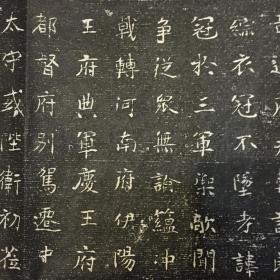 綜衣冠不墜考諱
冠於三軍敵
争從眾無論蘊沖
戟轉河南府伊陽
王府典軍慶王府
都督府別駕遷中
太守或陛衛初莅